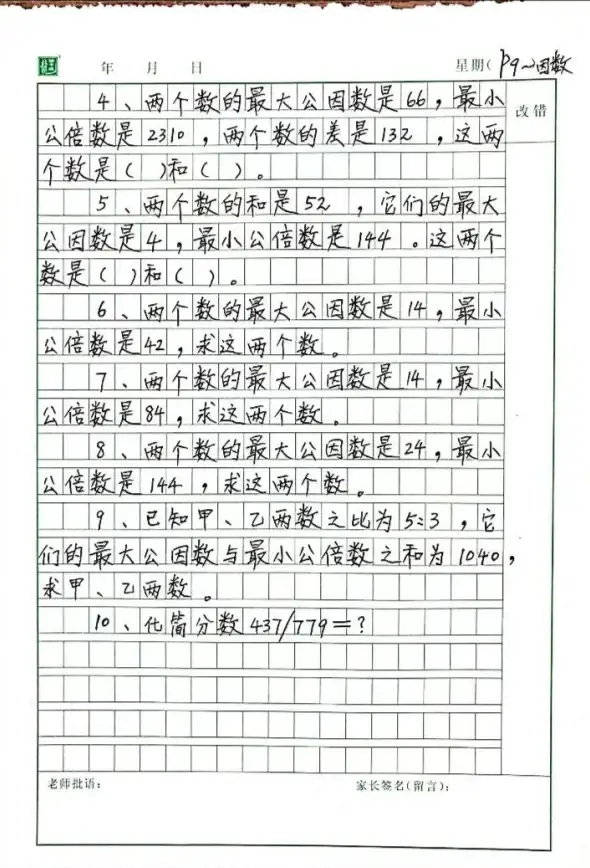 年 月 日 星期( P9~因数
改错
4、两个数的最大公因数是66，最小
公倍数是2310，两个数的差是132，这两
个数是( )和( )。
5、两个数的和是52，它们的最大
公因数是4，最小公倍数是144。这两个
数是( )和( )。
6、两个数的最大公因数是14，最小
公倍数是42，求这两个数。
7、两个数的最大公因数是14，最小
公倍数是84，求这两个数。
8、两个数的最大公因数是24，最小
公倍数是144，求这两个数。
9、已知甲、乙两数之比为5:3，它
们的最大公因数与最小公倍数之和为1040，
求甲、乙两数。
10、化简分数437/779=?
老师批语： 家长签名(留言)：